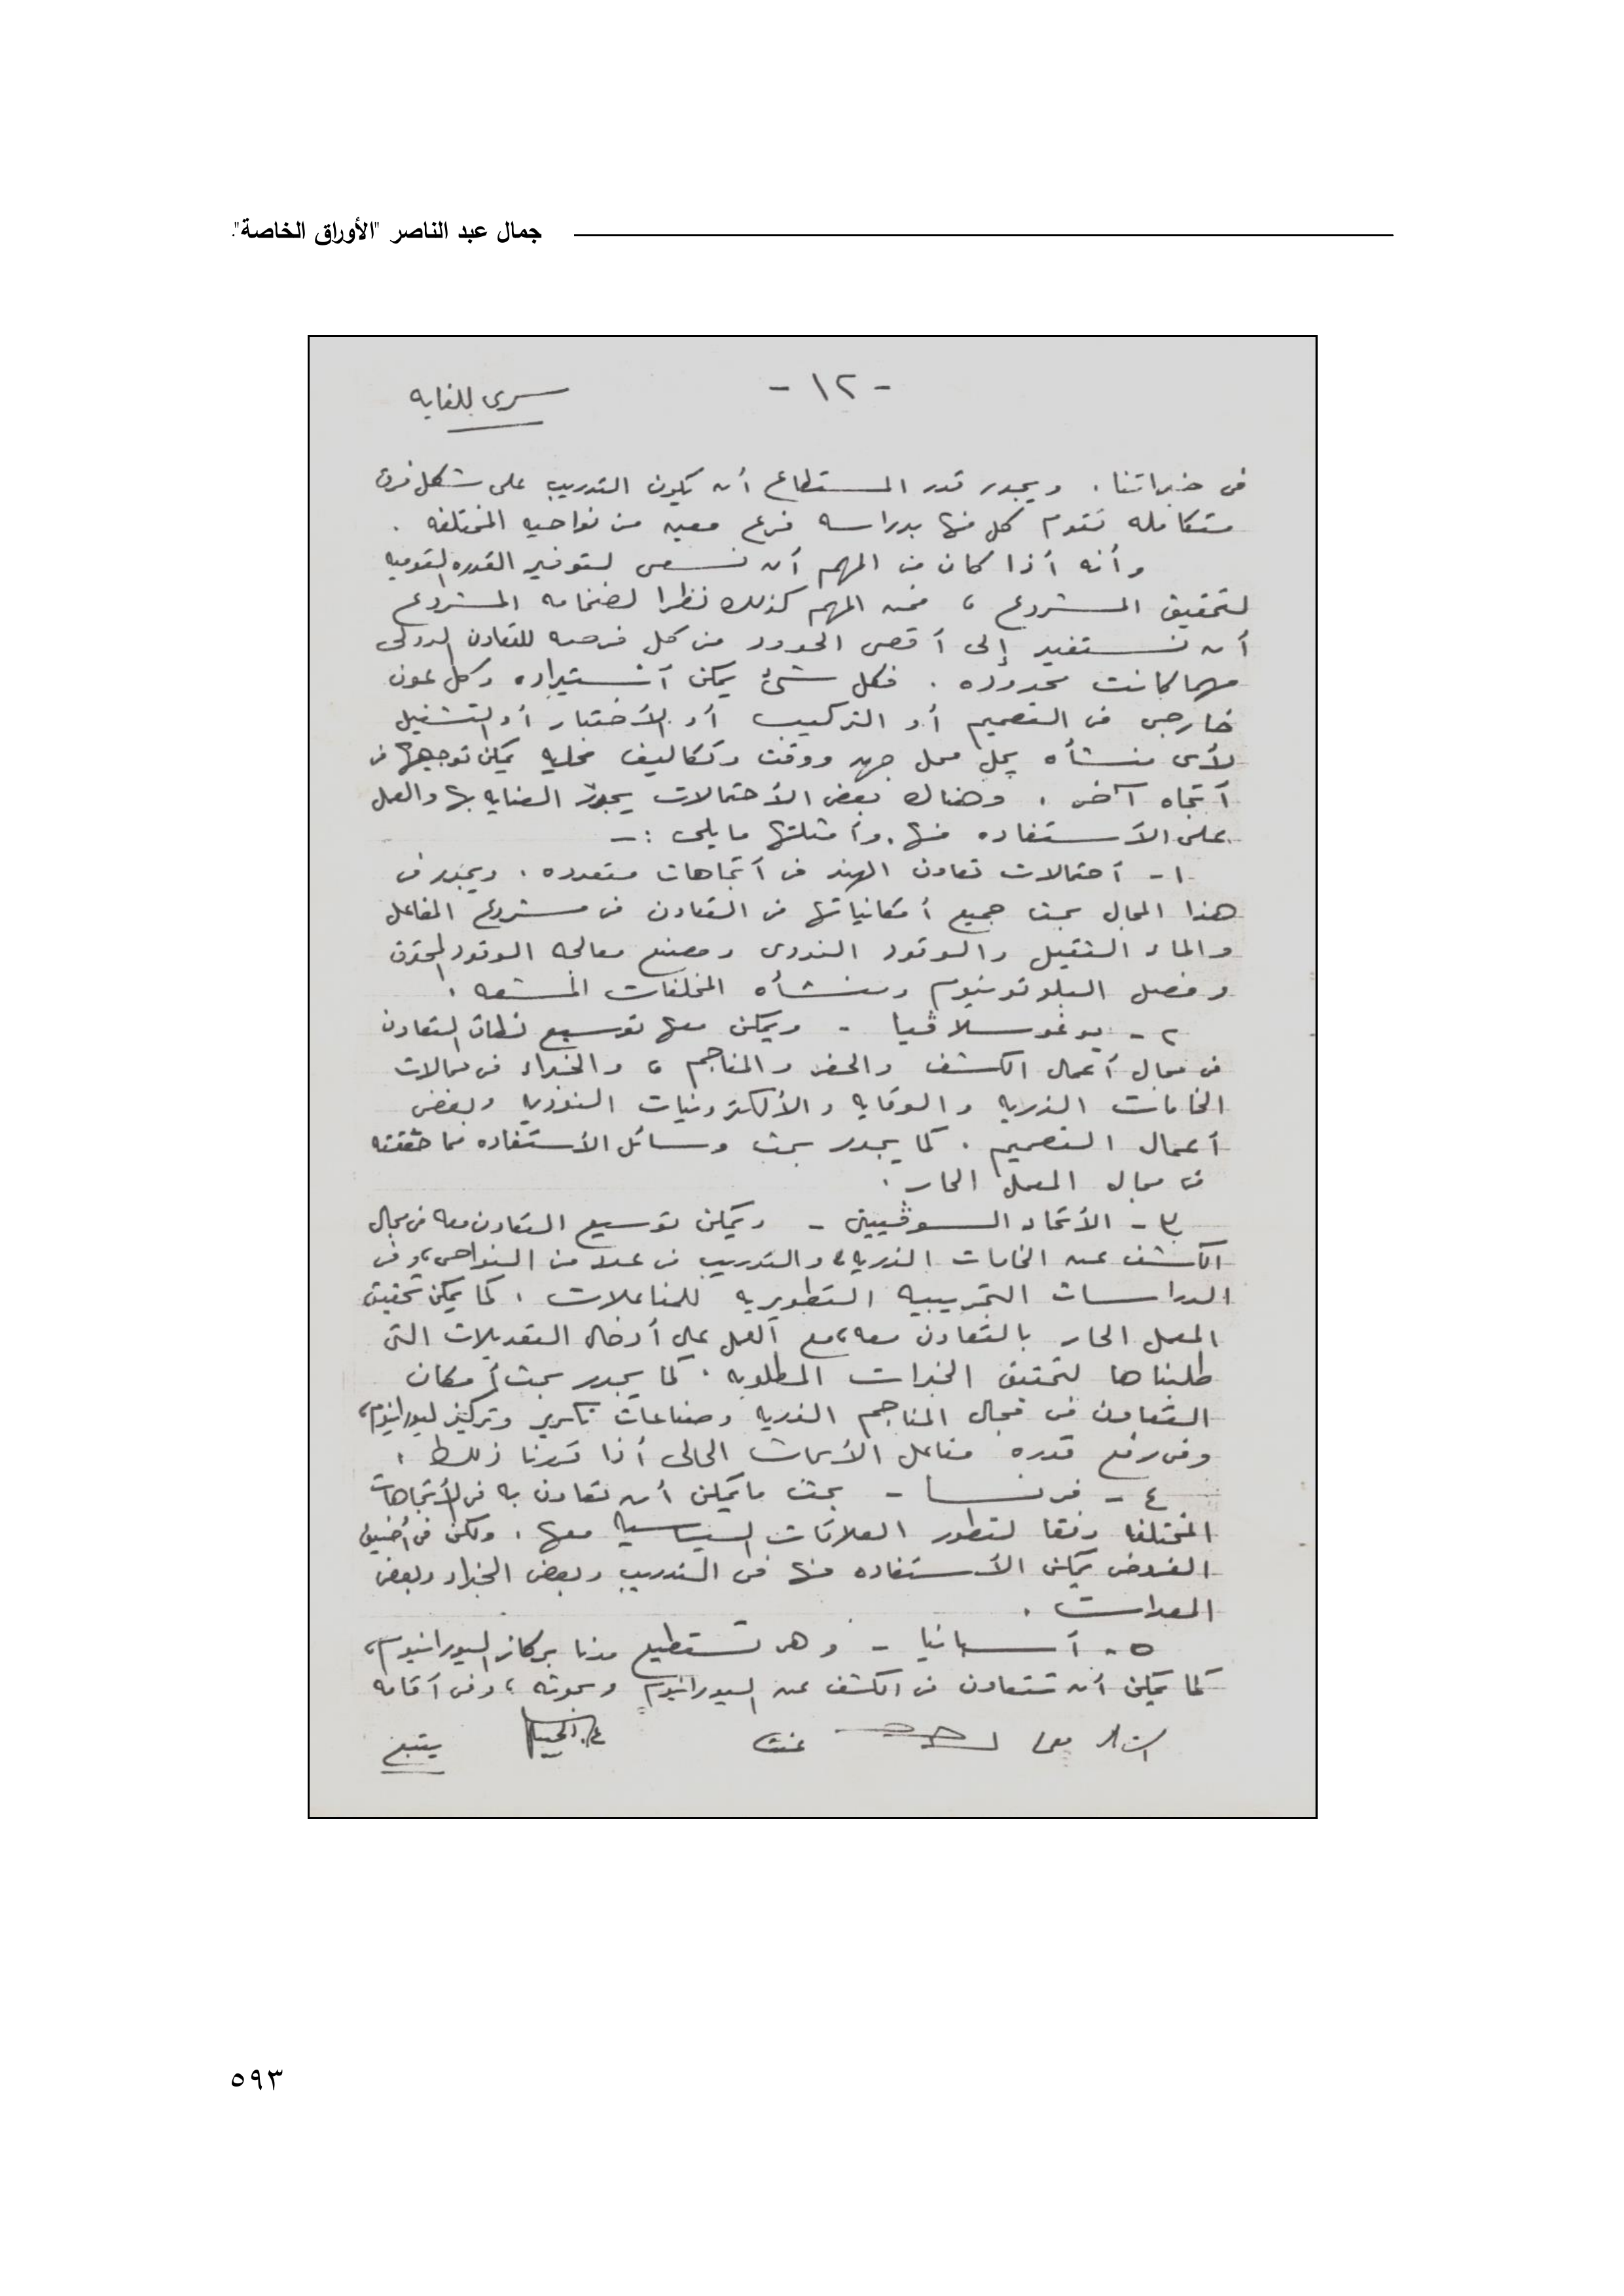 جمال عبد الناصر "الأوراق الخاصة".
- ١٢ -
سرى للغايه
فى خبراتنا . ويجدر قدر المستطاع أن يكون التدريب على شكل فرق
متكامله تقوم كل منها بدراسه فرع معين من نواحيه المختلفه .
وأنه أذا كان من المهم أن نسعى لتوفير القدره القوميه
لتحقيق المشروع ، فمن المهم كذلك نظرا لضخامه المشروع
أن نستفيد إلى أقصى الحدود من كل فرصه للتعاون الدولى
مهما كانت محدوده . فكل شئ يمكن أستيراده وكل عون
خارجى فى التصميم أو التركيب أو الأختبار أو التشغيل
لأى منشأه يحل محل جهد ووقت وتكاليف محليه يمكن توجيهها فى
أتجاه آخر . وهناك بعض الأحتمالات يجوز العنايه بها والعمل
على الأستفاده منها . وأمثلتها ما يلى : -
١ - أحتمالات تعاون الهند فى أتجاهات متعدده . ويجدر فى
هذا المجال بحث جميع أمكانياتها فى التعاون فى مشروع المفاعل
والماء الثقيل والوقود النووى ومصنع معالجه الوقود المحترق
وفصل البلوتونيوم ومنشأه المخلفات المشعه .
٢ - يوغوسلاڤيا - ويمكن معها توسيع نطاق التعاون
فى مجال أعمال الكشف والحفر والمناجم ، والخبراء فى مجالات
الخامات الذريه والوقايه والألكترونيات النوويه وبعض
أعمال التصميم . كما يجدر بحث وسائل الأستفاده مما حققته
فى مجال المعمل الحار .
٣ - الأتحاد السوڤييتى - ويمكن توسيع التعاون معه فى مجال
الكشف عن الخامات الذريه ، والتدريب فى عدد من النواحى ، وفى
الدراسات التجريبيه التطويريه للمفاعلات . كما يمكن تحقيق
المعمل الحار بالتعاون معه ، مع العمل على أدخال التعديلات التى
طلبناها لتحقيق الخبرات المطلوبه . كما يجدر بحث أمكان
التعاون فى مجال المناجم الذريه وصناعات تكرير وتركيز اليورانيوم ،
وفى رفع قدره مفاعل الأبحاث الحالى أذا قررنا ذلك .
٤ - فرنسا - بحث ما يمكن أن تعاون به فى الأتجاهات
المختلفه وفقا لتطور العلاقات السياسيه معها . ولكن فى أضيق
الفروض يمكن الأستفاده منها فى التدريب وبعض الخبراء وبعض
المعدات .
٥ - أسبانيا - وهى تستطيع مدنا بركاز اليورانيوم ،
كما يمكن أن تتعاون فى الكشف عن اليورانيوم وبحوثه ، وفى أقامه
يتبع
٥٩٣